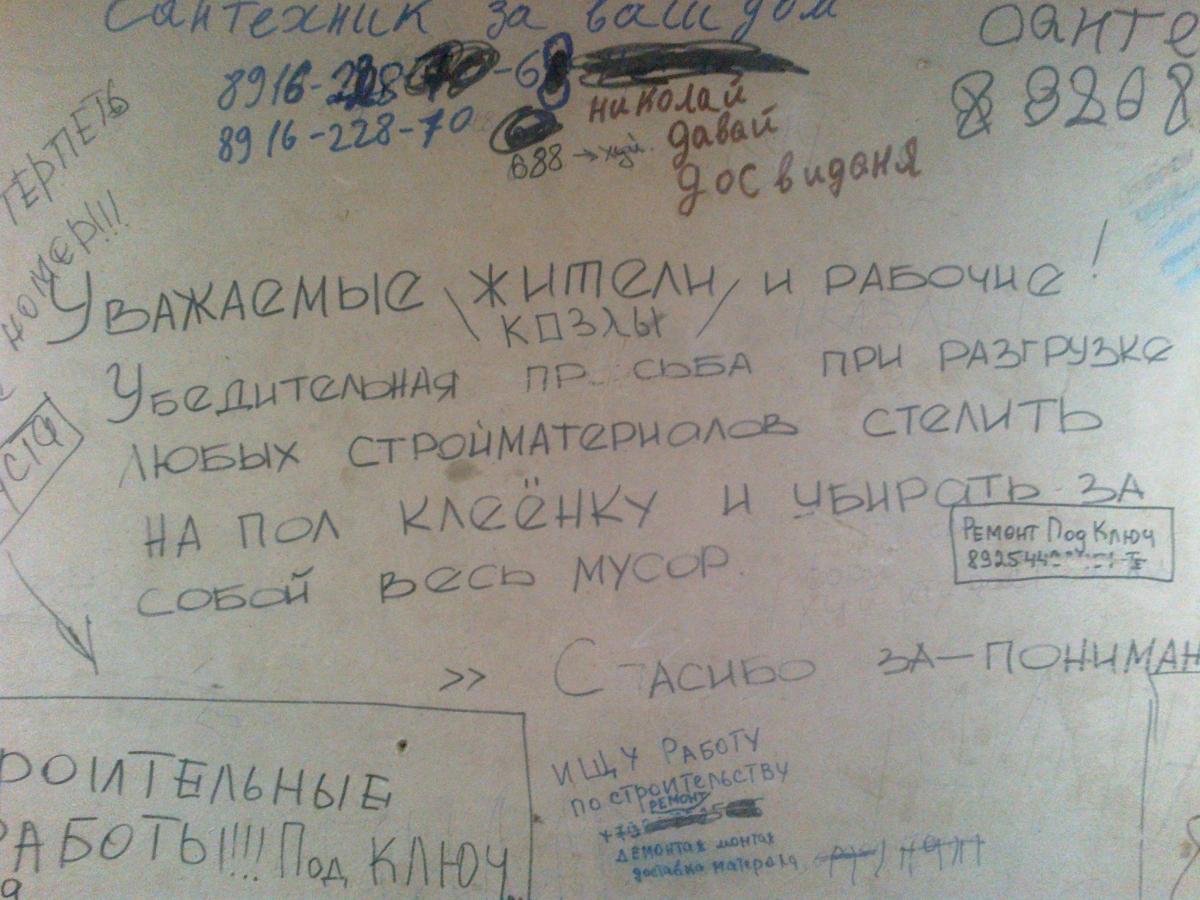 Сантехник за ваш дом
8916-228-70
николай
давай
досвиданя
688 → хуй.
Санте
8 3208
ТЕРПЕТЬ
НОМЕР!!!
Уважаемые жители и рабочие!
козлы
Убедительная пр сьба при разгрузке
любых стройматериалов стелить
на пол клеёнку и убирать за
собой весь мусор.
>> Спасибо за-пониман
Ремонт Под Ключ
892544
РОИТЕЛЬНЫЕ
РАБОТЫ!!!! Под КЛЮЧ
ИЩУ РАБОТУ
по строительству
РЕМОНТ
ДЕМОНТАЖ монтаж
доставка матерала